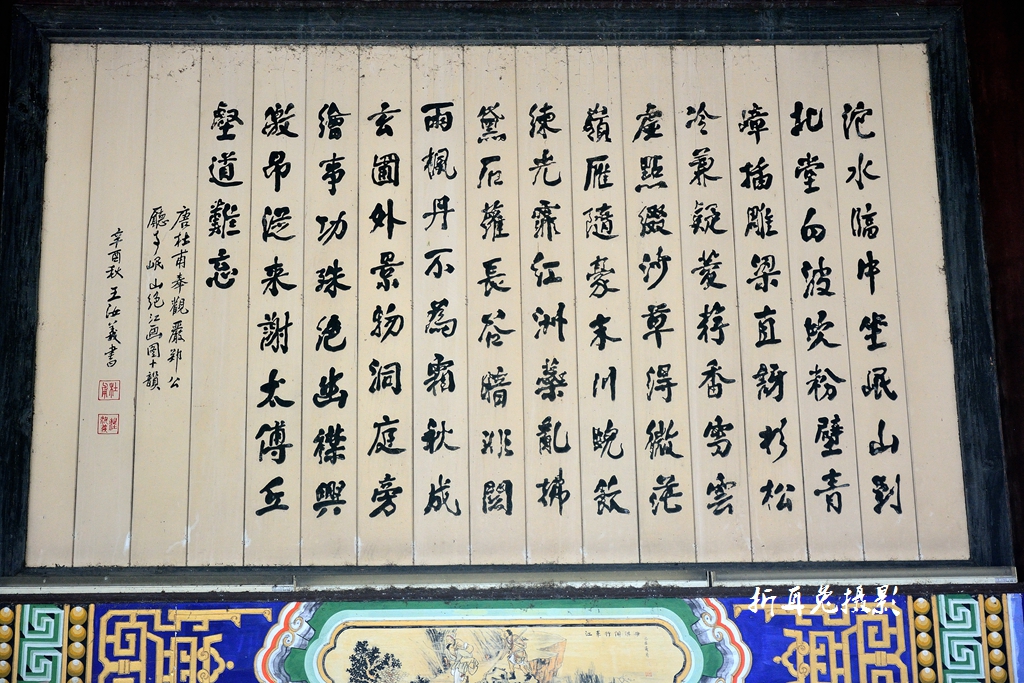 沱水臨中坐岷山到
北堂白波吹粉壁青
嶂插雕梁直訝杉松
冷兼疑菱荇香雪雲
虛點綴沙草得微茫
嶺雁隨豪末川蜺飲
練光霏紅洲蘂亂拂
黛石蘿長谷暗非關
雨楓丹不為霜秋成
玄圖外景物洞庭旁
繪事功殊絕幽襟興
激昂從来謝太傅丘
壑道難忘
唐杜甫奉觀嚴鄭公
廳事岷山絕江画圖十韻
辛酉秋王汝義書
折耳兔攝影